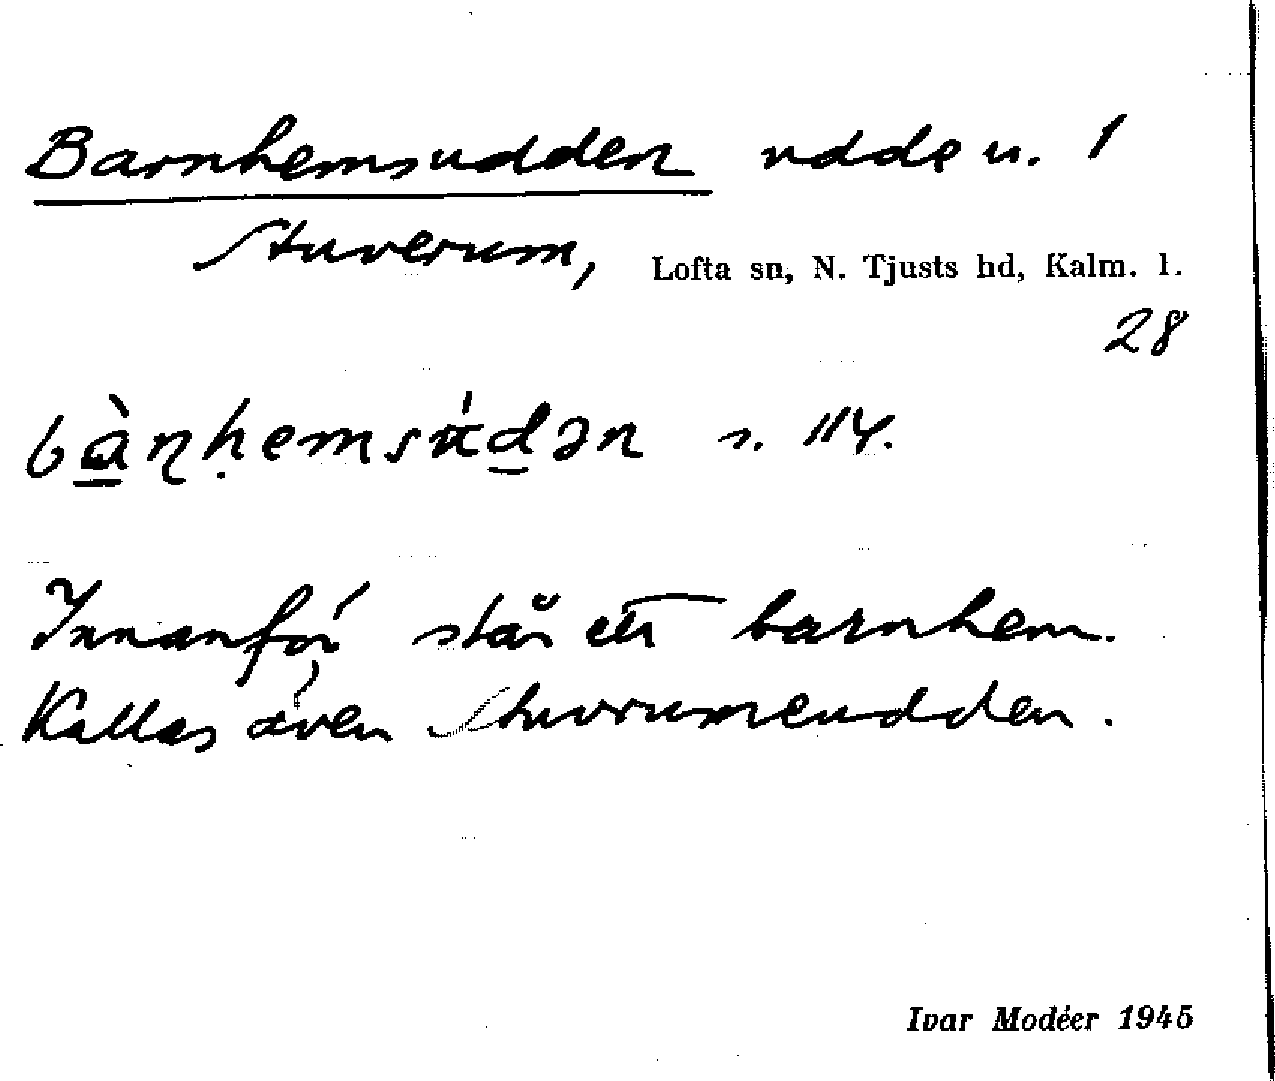 Barnhemsudden udde u. 1
Stuverum, Lofta sn, N. Tjusts hd, Kalm. l.
28
bàɳḥemsu̍dən s. 114.
Innanför står ett barnhem.
Kallas även Stuvrumeudden.
Ivar Modéer 1945